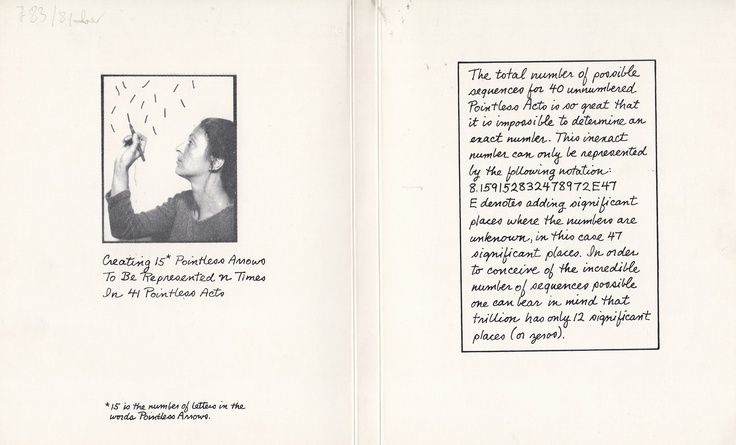 783/81
Creating 15* Pointless Arrows
To Be Represented n Times
In 41 Pointless Acts
*15 is the number of letters in the
words Pointless Arrows.
The total number of possible
sequences for 40 unnumbered
Pointless Acts is so great that
it is impossible to determine an
exact number. This inexact
number can only be represented
by the following notation:
8.159152832478972E47
E denotes adding significant
places where the numbers are
unknown, in this case 47
significant places. In order
to conceive of the incredible
number of sequences possible
one can bear in mind that
trillion has only 12 significant
places (or zeros).